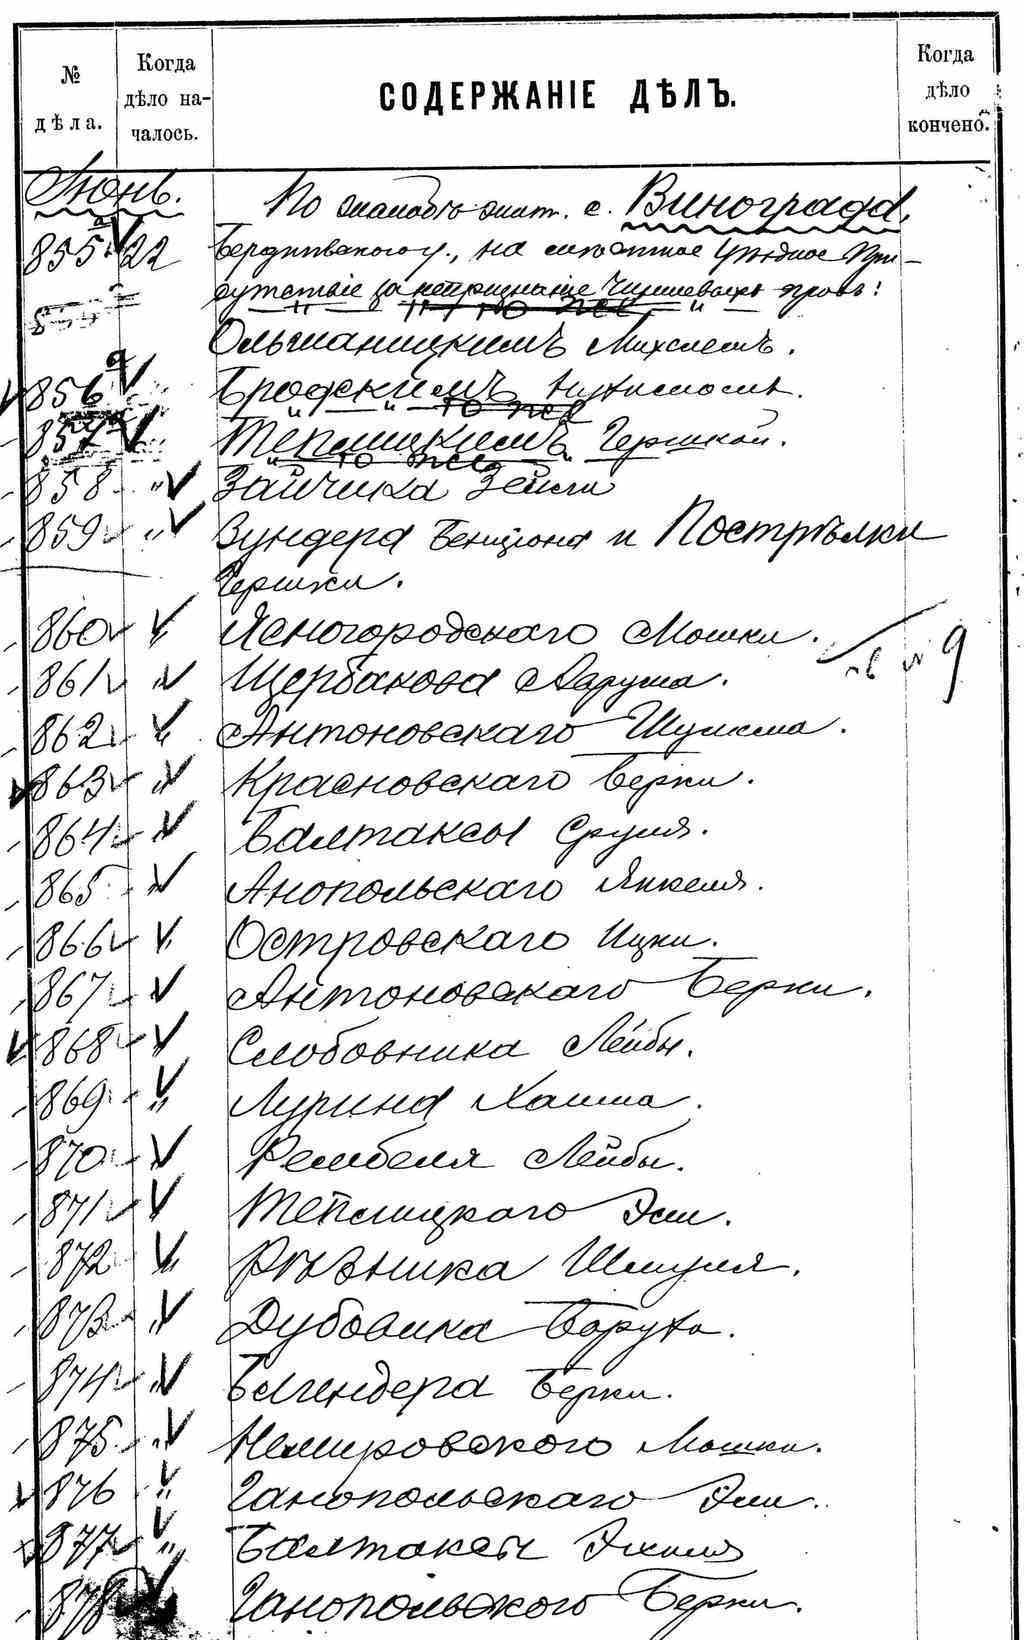 № дѣла.
Когда дѣло на-чалось.
СОДЕРЖАНІЕ ДѢЛЪ.
Когда дѣло кончено.
Іюнь.
По жалобѣ жит. с. Винограда,
855 22 на уѣздное При-
сутствіе за непризнаніе правъ:
Ольшаницкимъ
856 Бродскимъ
то же
857 " Теплицкимъ Гершкой.
то же
858 " Зайчика Зейли
859 " Зундера Бенціона и Пострѣлки
Гершки.
860 " Ясногородскаго Мошки. 9
861 " Щербакова Аврума.
862 " Антоновскаго Шулима.
863 " Красновскаго Берки.
864 " Балтаксы Сруля.
865 " Анопольскаго Янкеля.
866 " Островскаго Ицки.
867 " Антоновскаго Берки.
868 " Слободника Лейбы.
869 " Лурина Хаима.
870 " Рембеля Лейбы.
871 " Теплицкаго Эли.
872 " Рѣзника Шмуля.
873 " Дубовика Боруха.
874 " Блиндера Берки.
875 " Немировского Мошки.
876 " Ганопольскаго Эли.
877 " Балтаксы
878 " Ганопольского Берки.